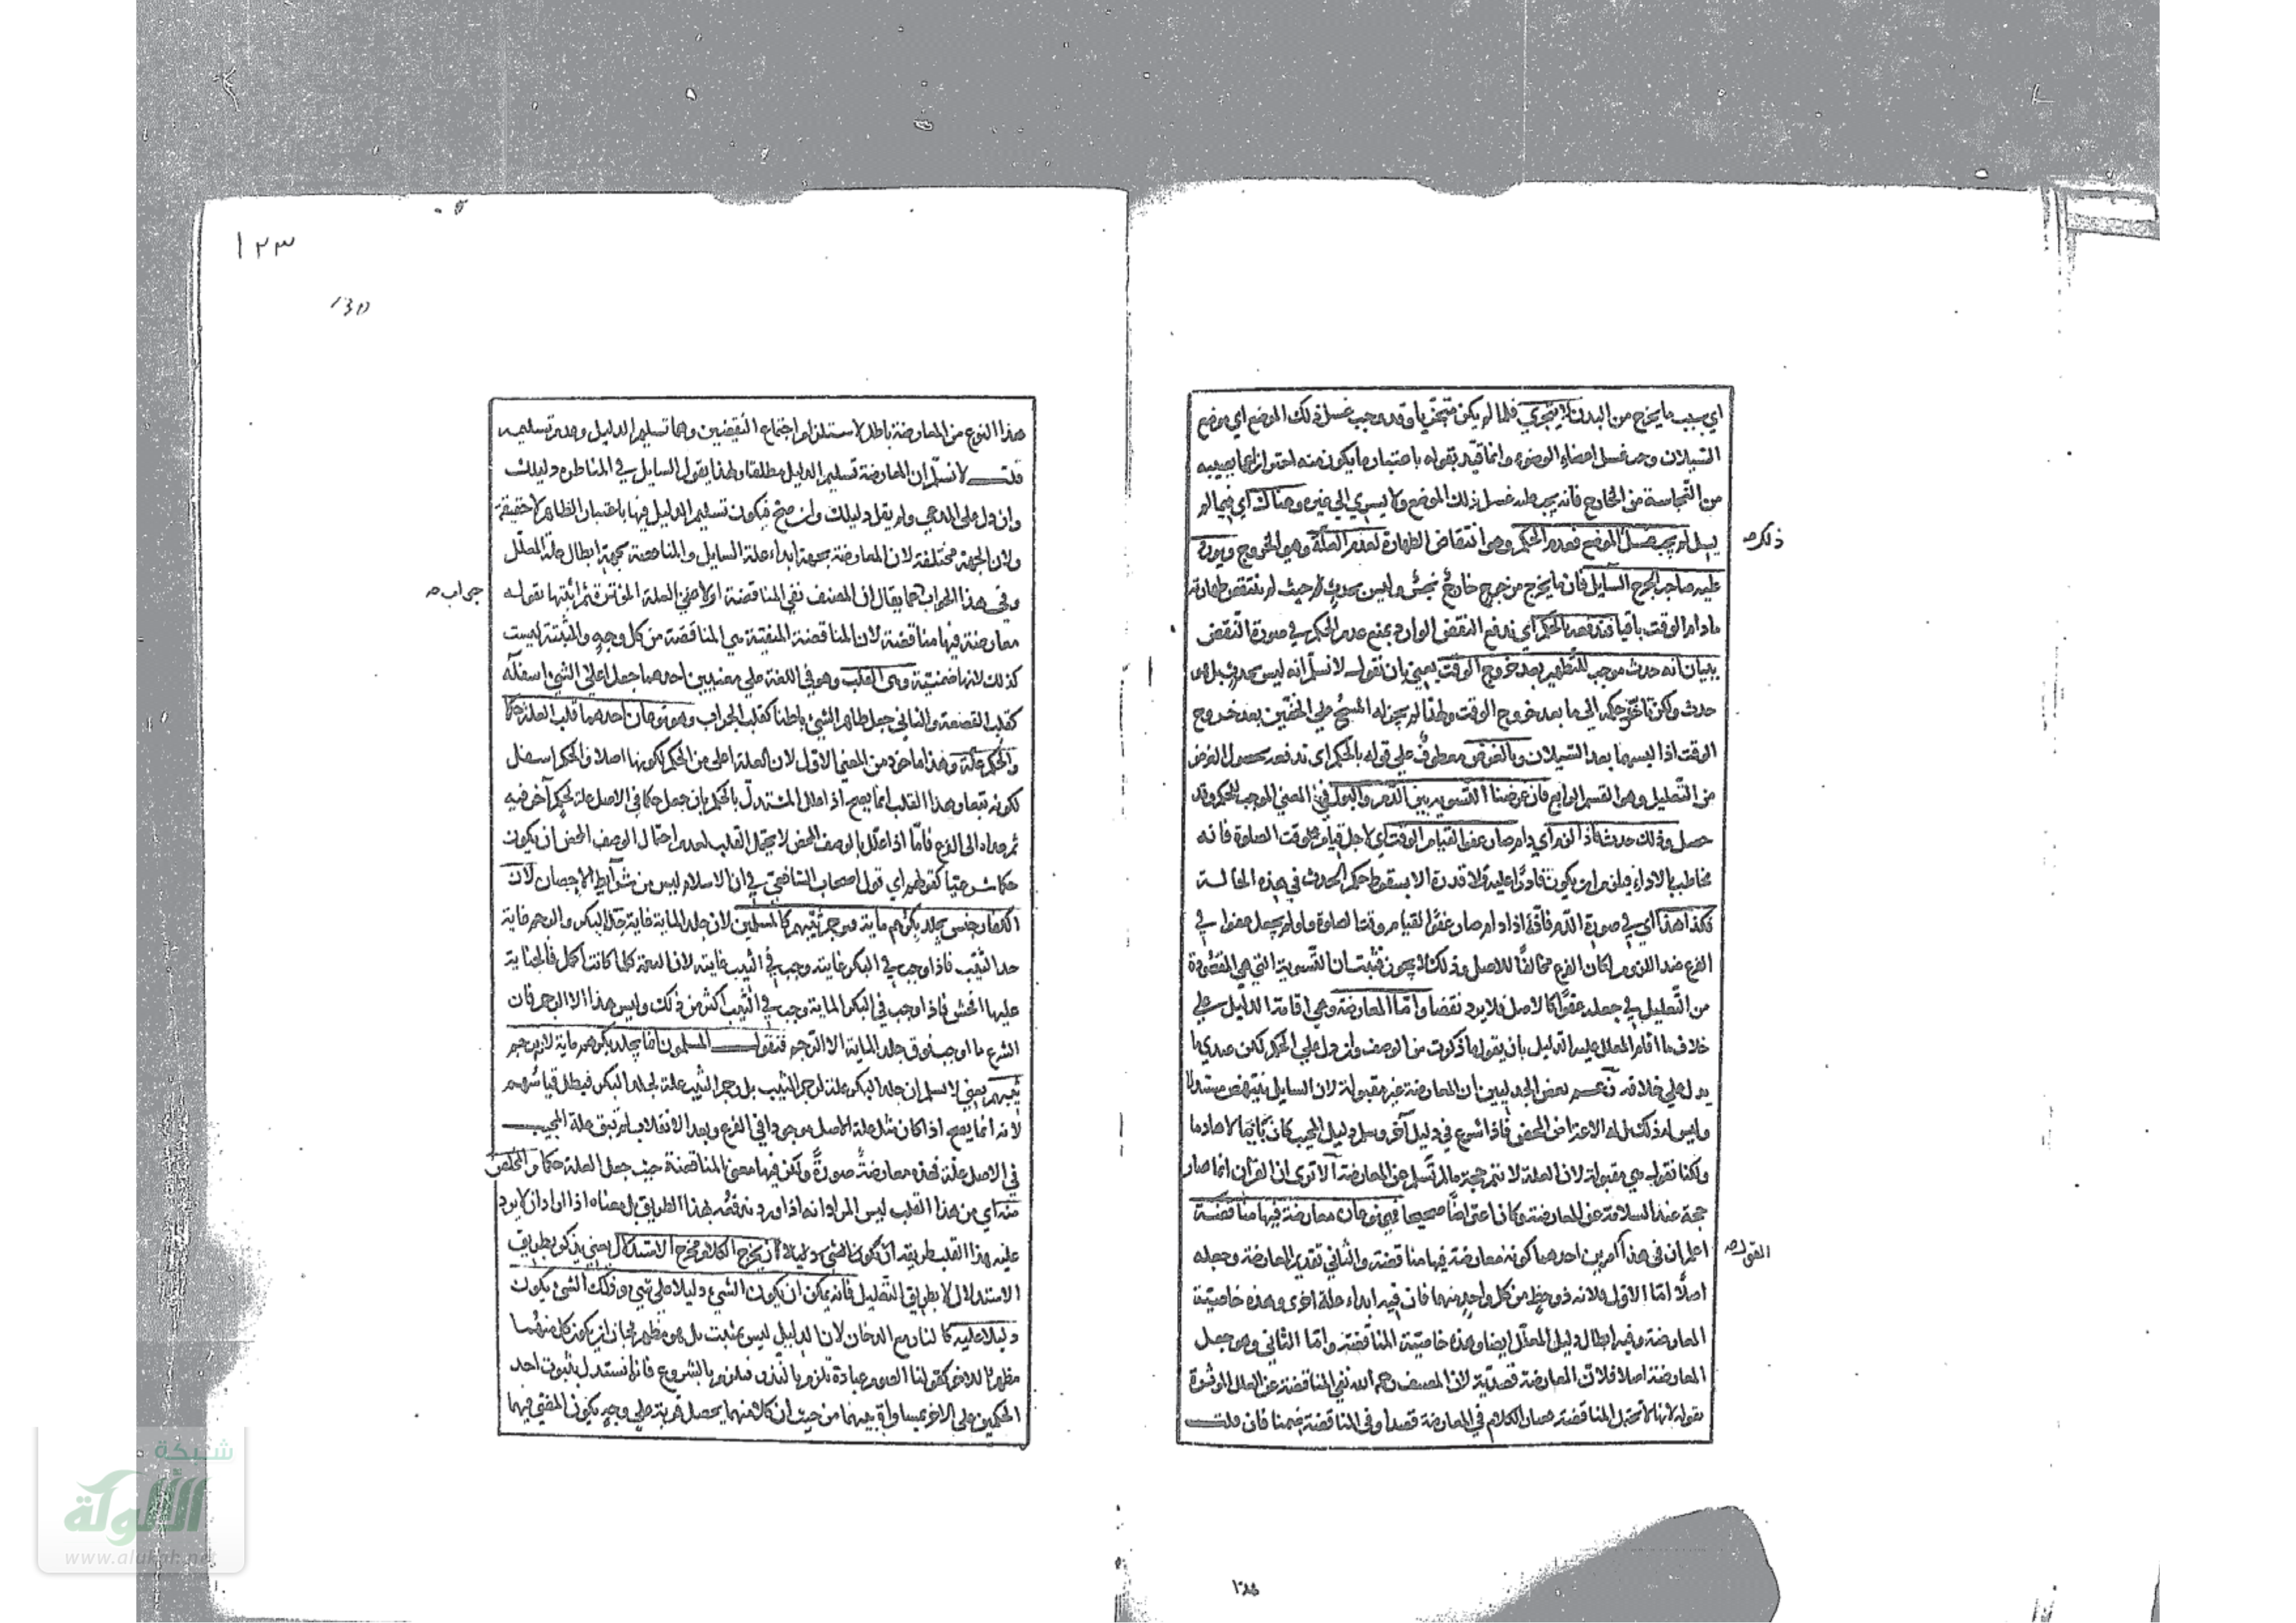 اي بسبب ما يخرج من البدن لا يتجزي فلما لم يكن متجزيا وقد وجب غسل ذلك الموضع اي موضع
السيلان وجب غسل اعضاء الوضوء وانما قيد بقوله باعتبار ما يكون منه احترازا عما يصيبه
من النجاسة من الخارج فانه يجب عليه غسل ذلك الموضع ولا يسري الي غيره وهناك اي فيما لم
يسل لم يجب غسل الموضع فعدم الحكم وهو انتقاض الطهارة لعدم العلة وهو الخروج ويورد
ذلك
عليه صاحب الجرح السايل فان ما يخرج من جرح خارج نجس وليس بحدث حيث لم تنتقض طهارته
ما دام الوقت باقيا فندفعه بالحكم اي ندفع النقض الوارد بمنع عدم الحكم في صورة النقض
ببيان انه حدث موجب للتطهير بعد خروج الوقت يعني بان نقول لا نسلم انه ليس بحدث بل هو
حدث ولكن تأخر حكمه الي ما بعد خروج الوقت ولهذا لم يجز له المسح علي الخفين بعد خروج
الوقت اذا لبسهما بعد السيلان وبالغرض معطوف علي قوله بالحكم اي ندفعه بحصول الغرض
من التعليل وهو القسم الرابع فان غرضنا التسوية بين الدم والبول في المعني الموجب للحكم وقد
حصل وذلك حدث فاذا لزم اي دام صار عفوا لقيام الوقت اي لاجل قيام وقت الصلوة فانه
مخاطب بالاداء فيلزم ان يكون قادرا عليه ولا قدرة الا بسقوط حكم الحدث في هذه الحالة
فكذا هذا اي في صورة الدم فانه اذا دام صار عفوا لقيام وقت الصلوة ولو لم يجعل عفوا في
الفرع عند اللزوم لكان الفرع مخالفا للاصل وذلك لا يجوز فثبت ان التسوية التي هي المقصودة
من التعليل في جعله عفوا كالاصل فلا يرد نقضا واما المعارضة وهي اقامة الدليل علي
خلاف ما اقام المعلل عليه الدليل بان يقول ما ذكرت من الوصف وان دل علي الحكم لكن عندي ما
يدل علي خلافه زعم بعض الجدليين ان المعارضة غير مقبولة لان السايل ينتهض مستدلا
وليس له ذلك بل له الاعتراض المحض فاذا شرع في دليل آخر وسلم دليل المجيب كان بانيا لا هادما
ولكنا نقول هي مقبولة لان العلة لا تتم حجة ما لم تسلم عن المعارضة الا تري ان القرآن انما صار
حجة عند السلامة عن المعارضة وكان اعتراضا صحيحا فهي نوعان معارضة فيها مناقضة
اعلم ان في هذا امرين احدهما كونه معارضة فيها مناقضة والثاني تقديم المعارضة وجعله
القول
اصلا اما الاول فلانه ذو حظ من كل واحد منهما فان فيه ابداء علة اخري وهذه خاصية
المعارضة وفيه ابطال دليل المعلل ايضا وهذه خاصية المناقضة واما الثاني وهو جعل
المعارضة اصلا فلان المعارضة قصدية لان المصنف رحمه الله نفي المناقضة عن العلل الموثرة
بقوله لانها لا تحتمل المناقضة فصار الكلام في المعارضة قصدا وفي المناقضة ضمنا فان قلت
١٢٣
هذا النوع من المعارضة باطل لاستلزام اجتماع النقيضين وهما تسليم الدليل وعدم تسليمه
قلت لا نسلم ان المعارضة تسليم الدليل مطلقا ولهذا يقول السايل في المناظرة دليلك
وان دل علي المدعي ولم يقل دليلك وان صح فيكون تسليم الدليل فيها باعتبار الظاهر لا حقيقة
ولان الجهة مختلفة لان المعارضة بجهة ابداء علة السايل والمناقضة بجهة ابطال علة المعلل
وفي هذا الجواب عما يقال ان المصنف نفي المناقضة اولا عن العلة المؤثرة ثم اثبتها بقوله
جواب
معارضة فيها مناقضة لان المناقضة المنفية هي المناقضة من كل وجه والمثبتة ليست
كذلك لانها ضمنية وهي القلب وهو في اللغة علي معنيين احدهما جعل اعلي الشيء اسفله
كقلب القصعة والثاني جعل ظاهر الشيء باطنا كقلب الجراب وهو نوعان احدهما قلب العلة حكما
والحكم علة وهذا ماخوذ من المعني الاول لان العلة اعلي من الحكم لكونها اصلا والحكم اسفل
لكونه تبعا وهذا القلب انما يصح اذا علل المستدل بالحكم بان جعل حكما في الاصل علة لحكم آخر فيه
ثم عداه الي الفرع فاما اذا علل بالوصف المحض لا يحتمل القلب لعدم احتمال الوصف المحض ان يكون
حكما شرعيا كقولهم اي قول اصحاب الشافعي في ان الاسلام ليس من شرايط الاحصان لان
الكفار جنس يجلد بكرهم ماية فيرجم ثيبهم كالمسلمين لان جلد الماية غاية حد البكر والرجم غاية
حد الثيب فاذا وجب في البكر غايته وجب في الثيب غايته لان النعمة كلما كانت اكمل فالجناية
عليها افحش فاذا وجب في البكر الماية وجب في الثيب اكثر من ذلك وليس هذا الا الرجم فان
الشرع ما اوجب فوق جلد الماية الا الرجم فنقول المسلمون انما يجلد بكرهم ماية لانه يرجم
ثيبهم يعني لا نسلم ان جلد البكر علة لرجم الثيب بل رجم الثيب علة لجلد البكر فيبطل قياسهم
لانه انما يصح اذا كان مثل علة الاصل موجودا في الفرع وبعد الانقلاب لم تبق علة المجيب
في الاصل علة فهذه معارضة صورة ولكن فيها معني المناقضة حيث جعل العلة حكما والمخلص
منه اي من هذا القلب ليس المراد انه اذا ورد ندفعه بهذا الطريق بل معناه اذا اراد ان لا يرد
عليه هذا القلب طريقه ان يكون الشيء دليلا ان يخرج الكلام مخرج الاستدلال يعني يذكر بطريق
الاستدلال لا بطريق التعليل فانه يمكن ان يكون الشيء دليلا علي شيء وذلك الشيء يكون
دليلا عليه كالنار مع الدخان لان الدليل ليس بمثبت بل هو مظهر فجاز ان يكون كل منهما
مظهرا للاخر كقولنا الصوم عبادة تلزم بالنذر فيلزم بالشروع فانا نستدل بثبوت احد
الحكمين علي الاخر لمساواة بينهما من حيث ان كلا منهما يحصل قربة علي وجه يكون المضي فيهما
شبكة
الألوكة
www.alukah.net